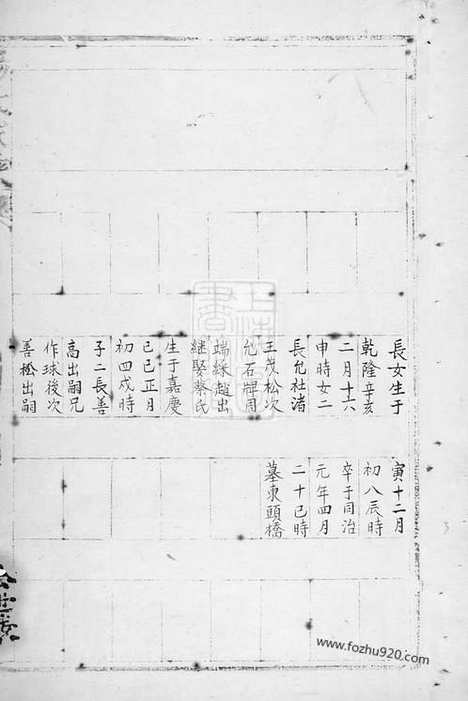 長女生于
乾隆辛亥
二月十六
申時女二
長允社渚
王茂松次
允石牌周
端綵趙出
繼娶蔡氏
生于嘉慶
己巳正月
初四戌時
子二長善
高出嗣兄
作球後次
善松出嗣
寅十二月
初八辰時
卒于同治
元年四月
二十巳時
墓東頭橋
www.fozhu920.com